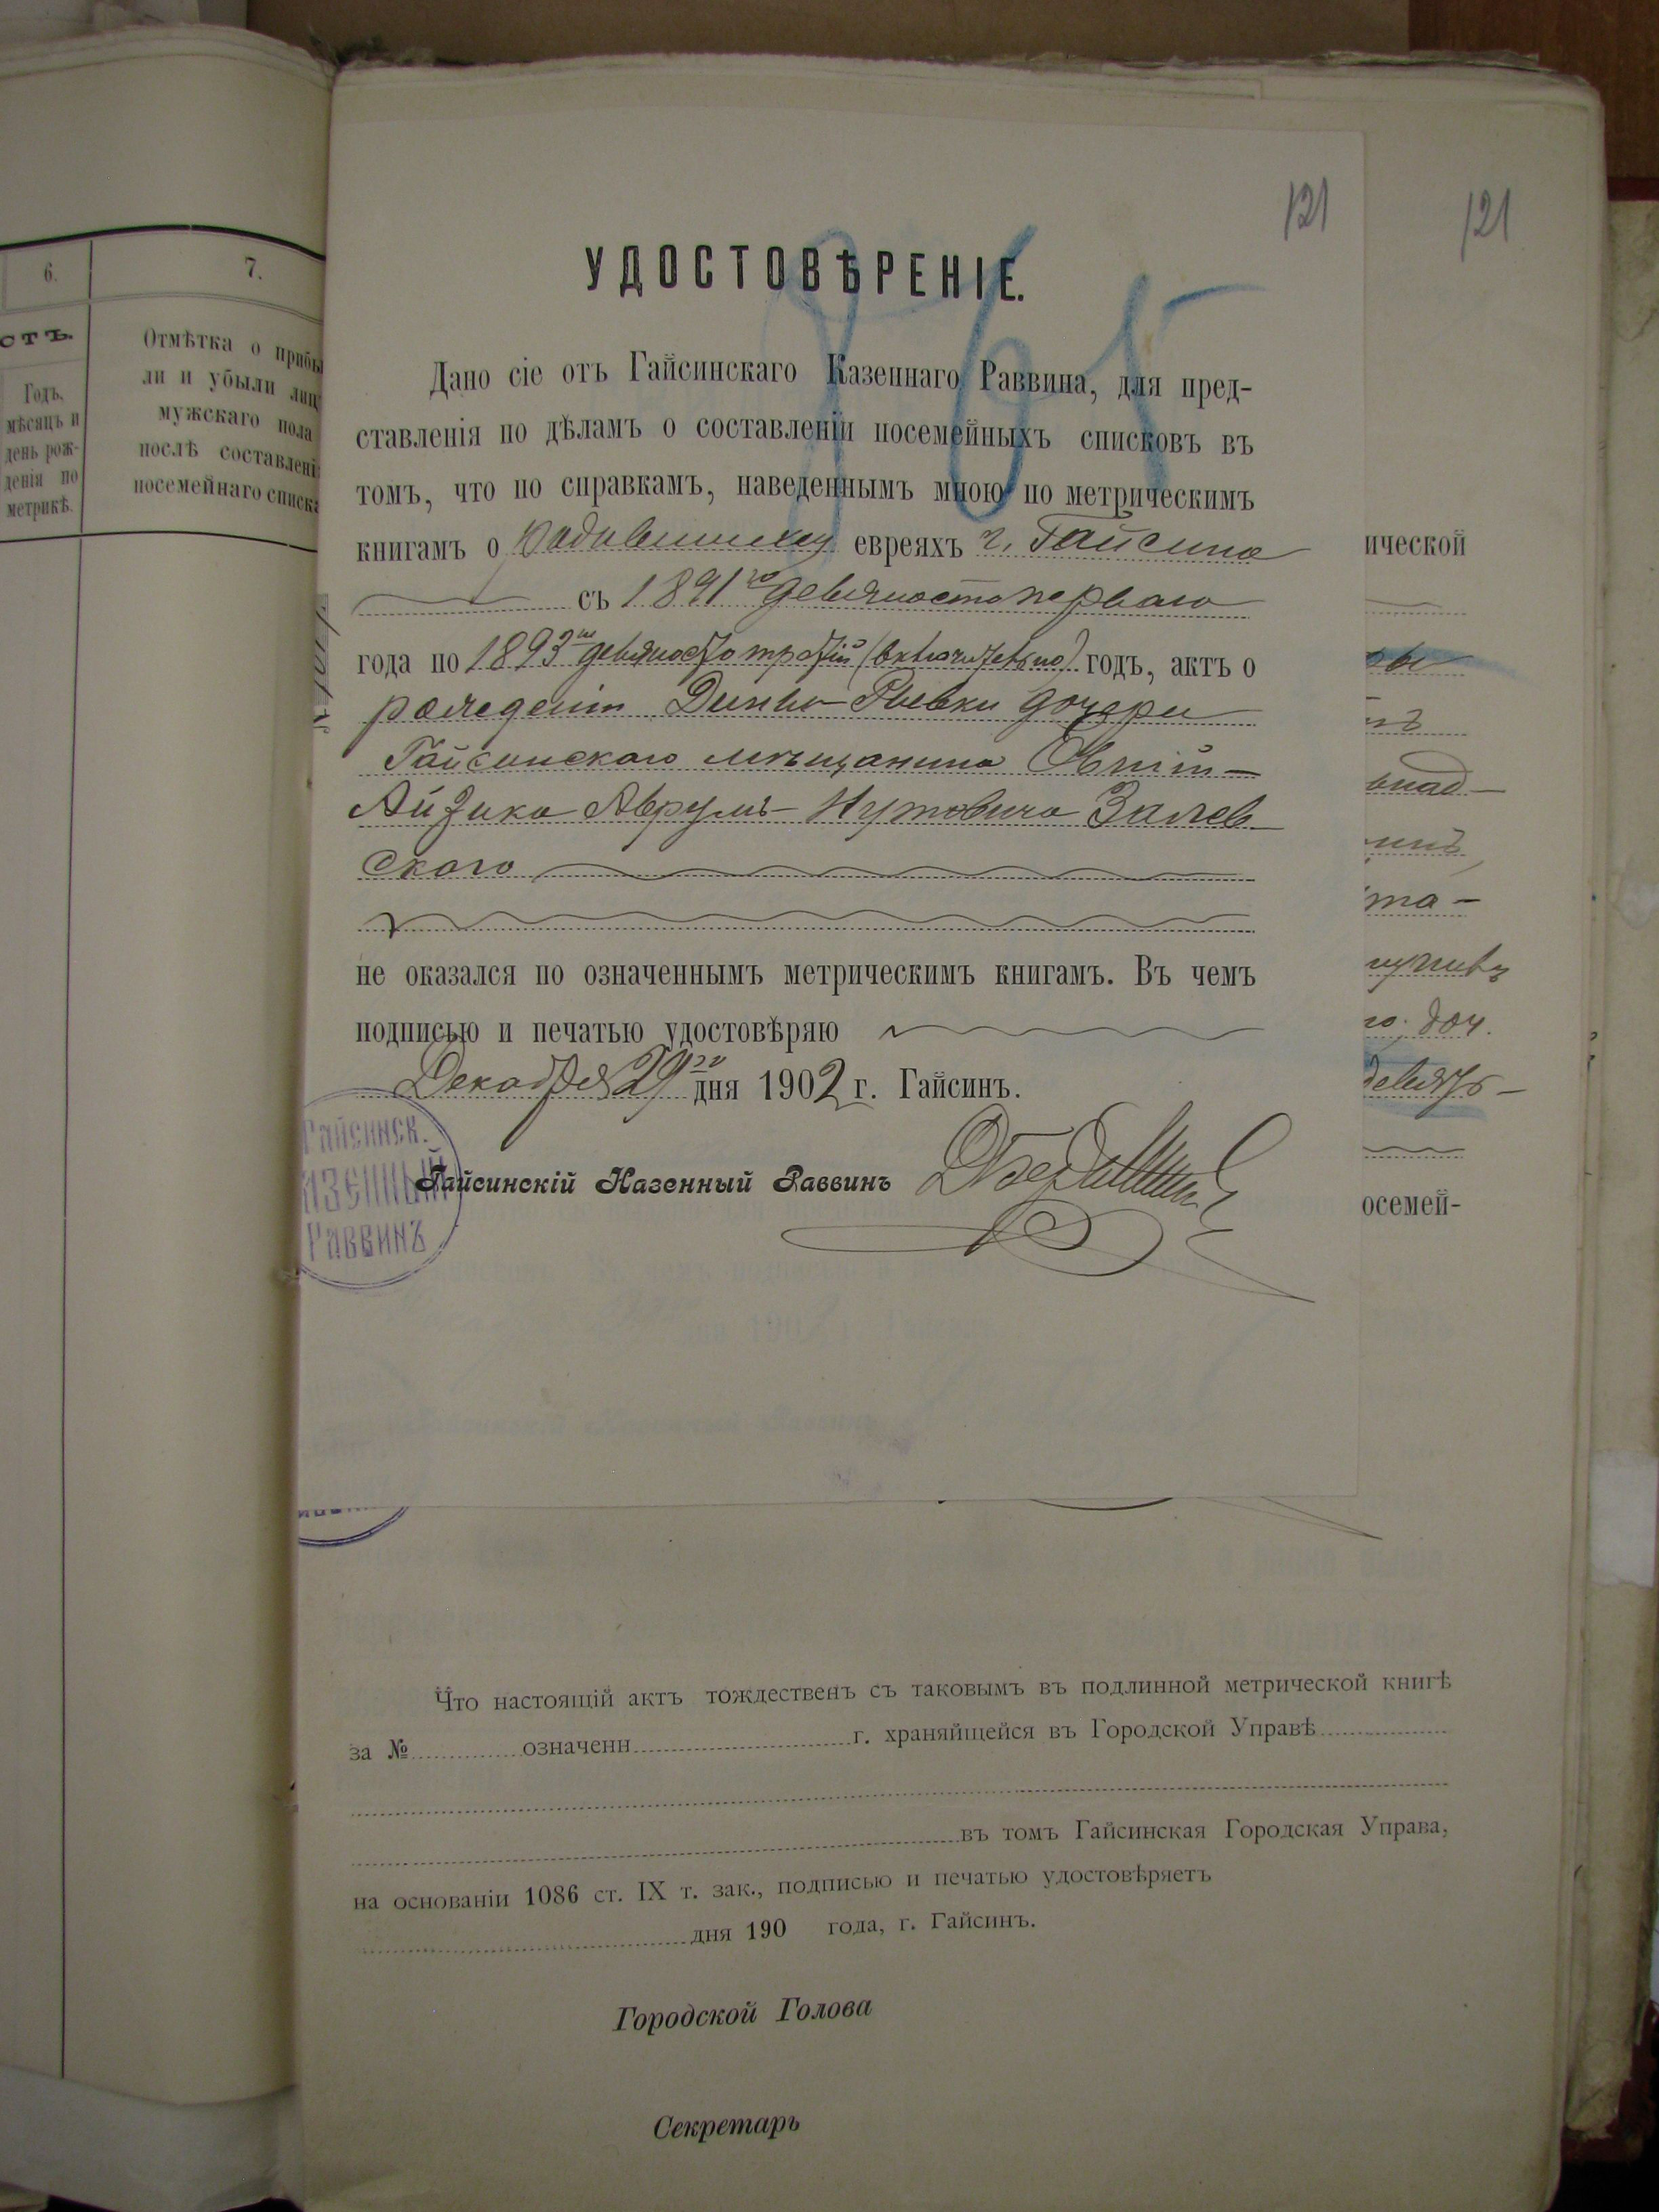 6.
7.
сть.
Отмѣтка о прибы
ли и убыли лиц
мужскаго пола
послѣ составлені
посемейнаго списка
Годъ,
мѣсяцъ и
день рож-
денія по
метрикѣ.
121
121
УДОСТОВѢРЕНІЕ.
Дано сіе отъ Гайсинскаго Казеннаго Раввина, для пред-
ставленія по дѣламъ о составленіи посемейныхъ списковъ въ
томъ, что по справкамъ, наведеннымъ мною по метрическимъ
книгамъ о родившихся евреяхъ г. Гайсина
съ 1891го девяносто перваго
года по 1893ій девяносто третій (включительно) годъ, актъ о
рожденіи Дины-Ривки дочери
Гайсинскаго мѣщанина
Айзика Аврумъ-Нутовича Залев
скаго
не оказался по означеннымъ метрическимъ книгамъ. Въ чемъ
подписью и печатью удостовѣряю
Декабря 29го дня 1902 г. Гайсинъ.
Гайсинск.
азенный
Раввинъ
Гайсинскій Казенный Раввинъ
ической
та-
го. доч.
девять-
осемей-
Что настоящій актъ тождественъ съ таковымъ въ подлинной метрической книгѣ
за № означенн г. храняйщейся въ Городской Управѣ
въ томъ Гайсинская Городская Управа,
на основаніи 1086 ст. IX т. зак., подписью и печатью удостовѣряетъ
дня 190 года, г. Гайсинъ.
Городской Голова
Секретарь